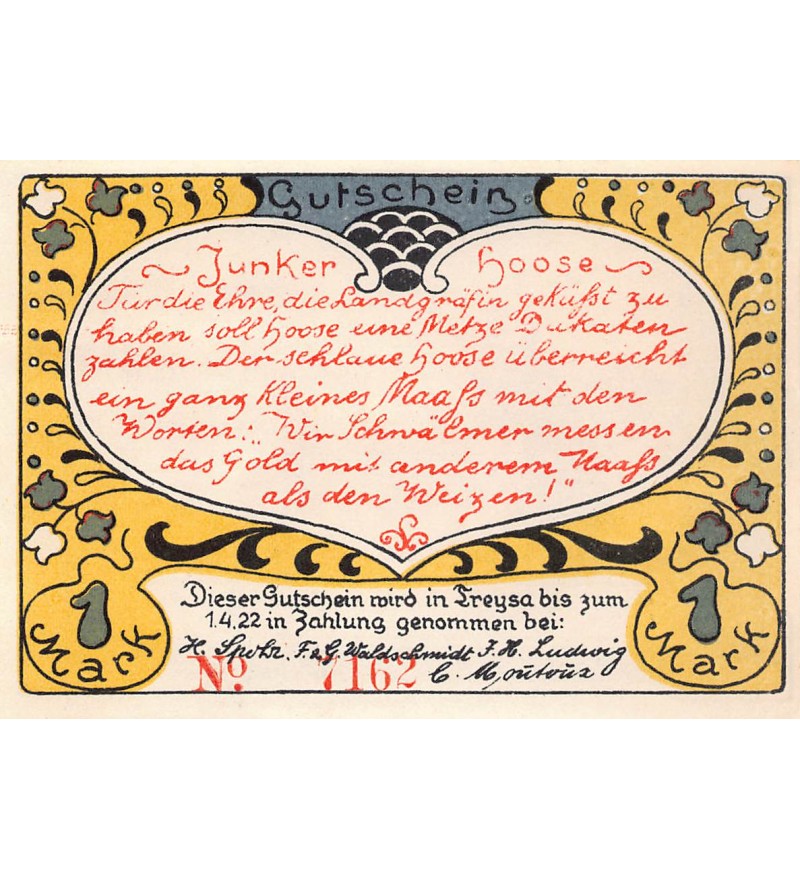 Gutschein.
Junker Hoose
Für die Ehre, die Landgräfin geküßt zu
haben soll Hoose eine Metze Dukaten
zahlen. Der schlaue Hoose überreicht
ein ganz kleines Maaß mit den
Worten: „Wir Schwälmer messen
das Gold mit anderem Maaß
als den Weizen!"
Dieser Gutschein wird in Treysa bis zum
1.4.22 in Zahlung genommen bei:
H. Spohr. F. & G. Waldschmidt F. H. Ludwig
C. Moutoux
No. 7162
1 Mark
1 Mark